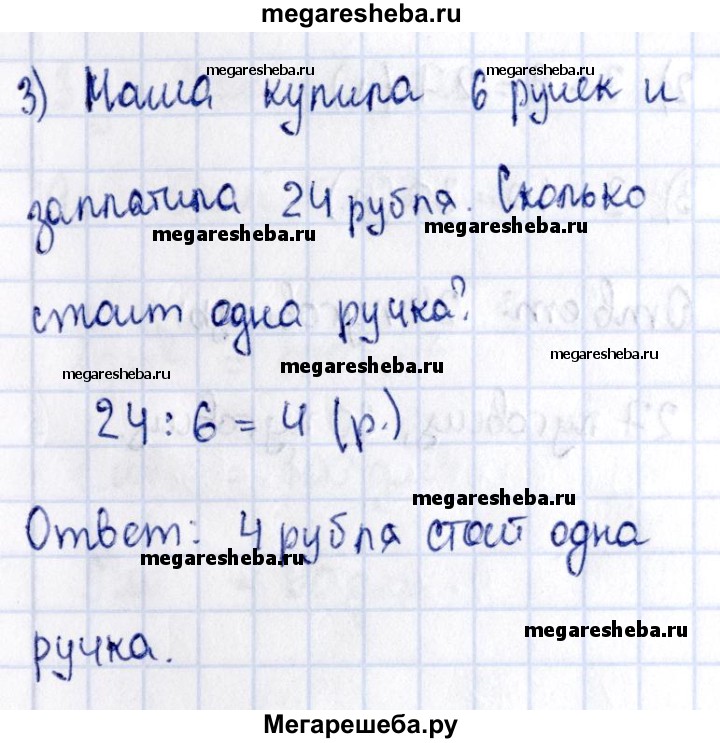 megaresheba.ru
3) Маша купила 6 ручек и
megaresheba.ru megaresheba.ru
заплатила 24 рубля. Сколько
megaresheba.ru megaresheba.ru
стоит одна ручка?
megaresheba.ru megaresheba.ru
megaresheba.ru
24 : 6 = 4 (р.)
megaresheba.ru
Ответ: 4 рубля стоит одна
megaresheba.ru
megaresheba.ru
ручка.
Мегарешеба.ру